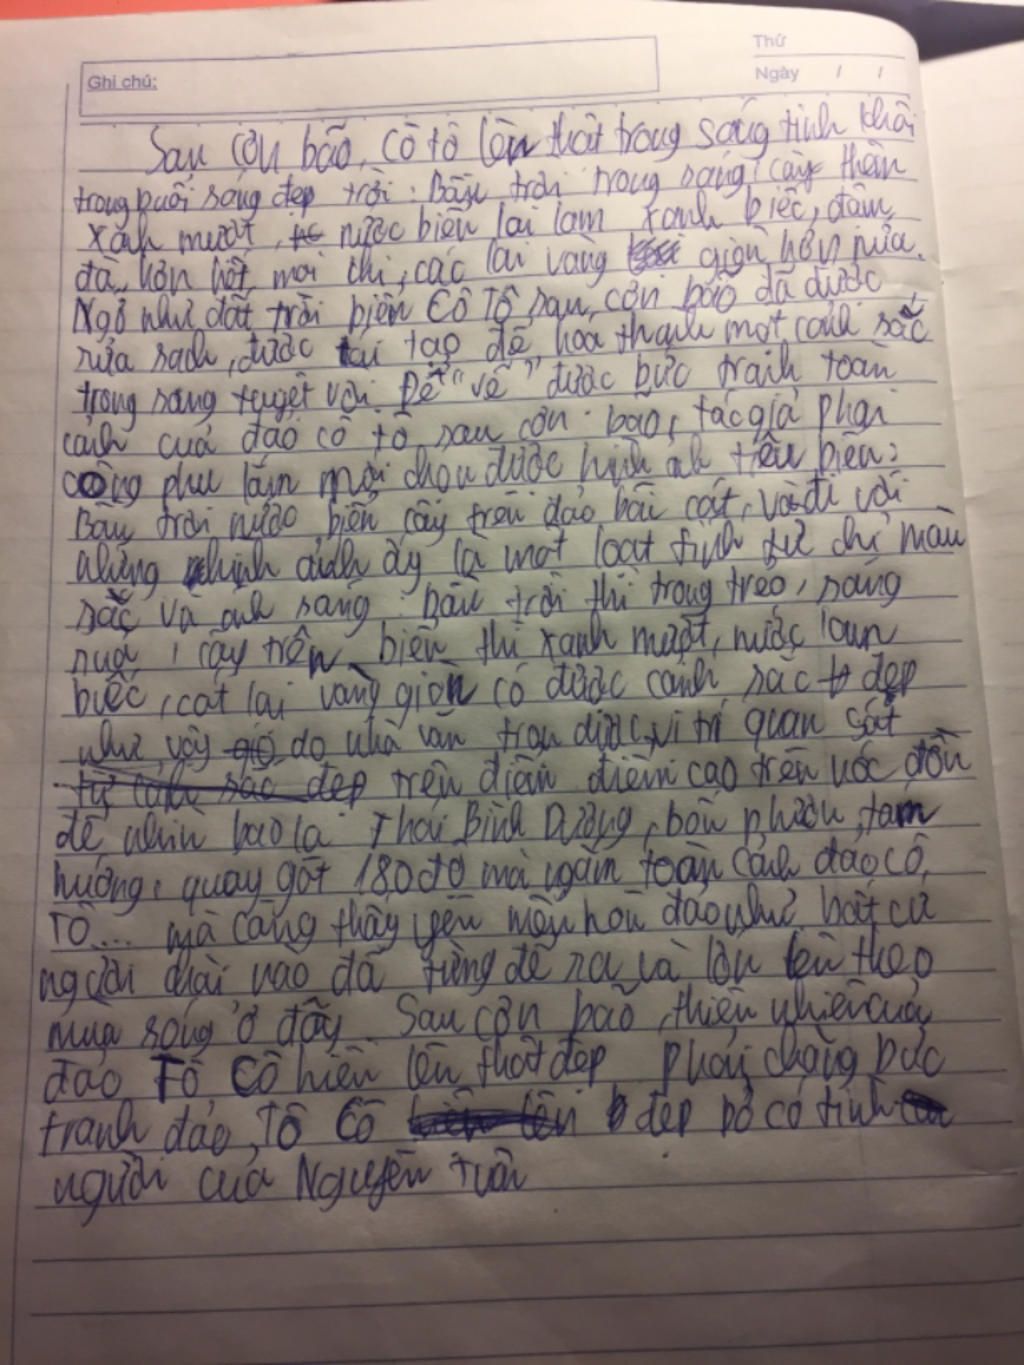 Thứ
Ghi chú:
Ngày / /
Sau cơn bão, Cô tô lên thật trong sáng tinh khôi
trong buổi sáng đẹp trời: Bầu trời trong sáng, cây thêm
xanh mượt, nước biển lại lam xanh biếc, đậm
đà, hơn hết mọi khi, các lại vàng giòn hơn nữa.
Ngỡ như đất trời biển Cô Tô sau cơn bão đã được
rửa sạch, được tái tạo để hoá thành một cảnh sắc
trong sáng tuyệt vời. Để "vẽ" được bức tranh toàn
cảnh của đảo cô tô sau cơn bão, tác giả phải
công phu lắm mới chọn được hình ảnh tiêu biểu:
Bầu trời nước biển cây trên đảo bãi cát, và đi với
những hình ảnh ấy là một loạt tính từ chỉ màu
sắc và ánh sáng: bầu trời thì trong trẻo, sáng
sủa, cây trên biển thì xanh mượt, nước lam
biếc, cát lại vàng giòn có được cảnh sắc đẹp
như vậy do nhà văn trọn được vị trí quan sát
từ cảnh sắc đẹp trên điểm điểm cao trên nóc đồn
để nhìn bao la Thái Bình Dương, bốn phươn, tám
hướng, quay gót 180 độ mà ngắm toàn cảnh đảo cô
Tô.... mà càng thấy yên mến hòn đảo như bất cứ
người chài nào đã từng đẻ ra và lớn lên theo
mùa sóng ở đây. Sau cơn bão, thiên nhiên của
đảo Tô Cô hiện lên thật đẹp phải chăng bức
tranh đảo Tô Cô đẹp bở có tình
người của Nguyễn tuân